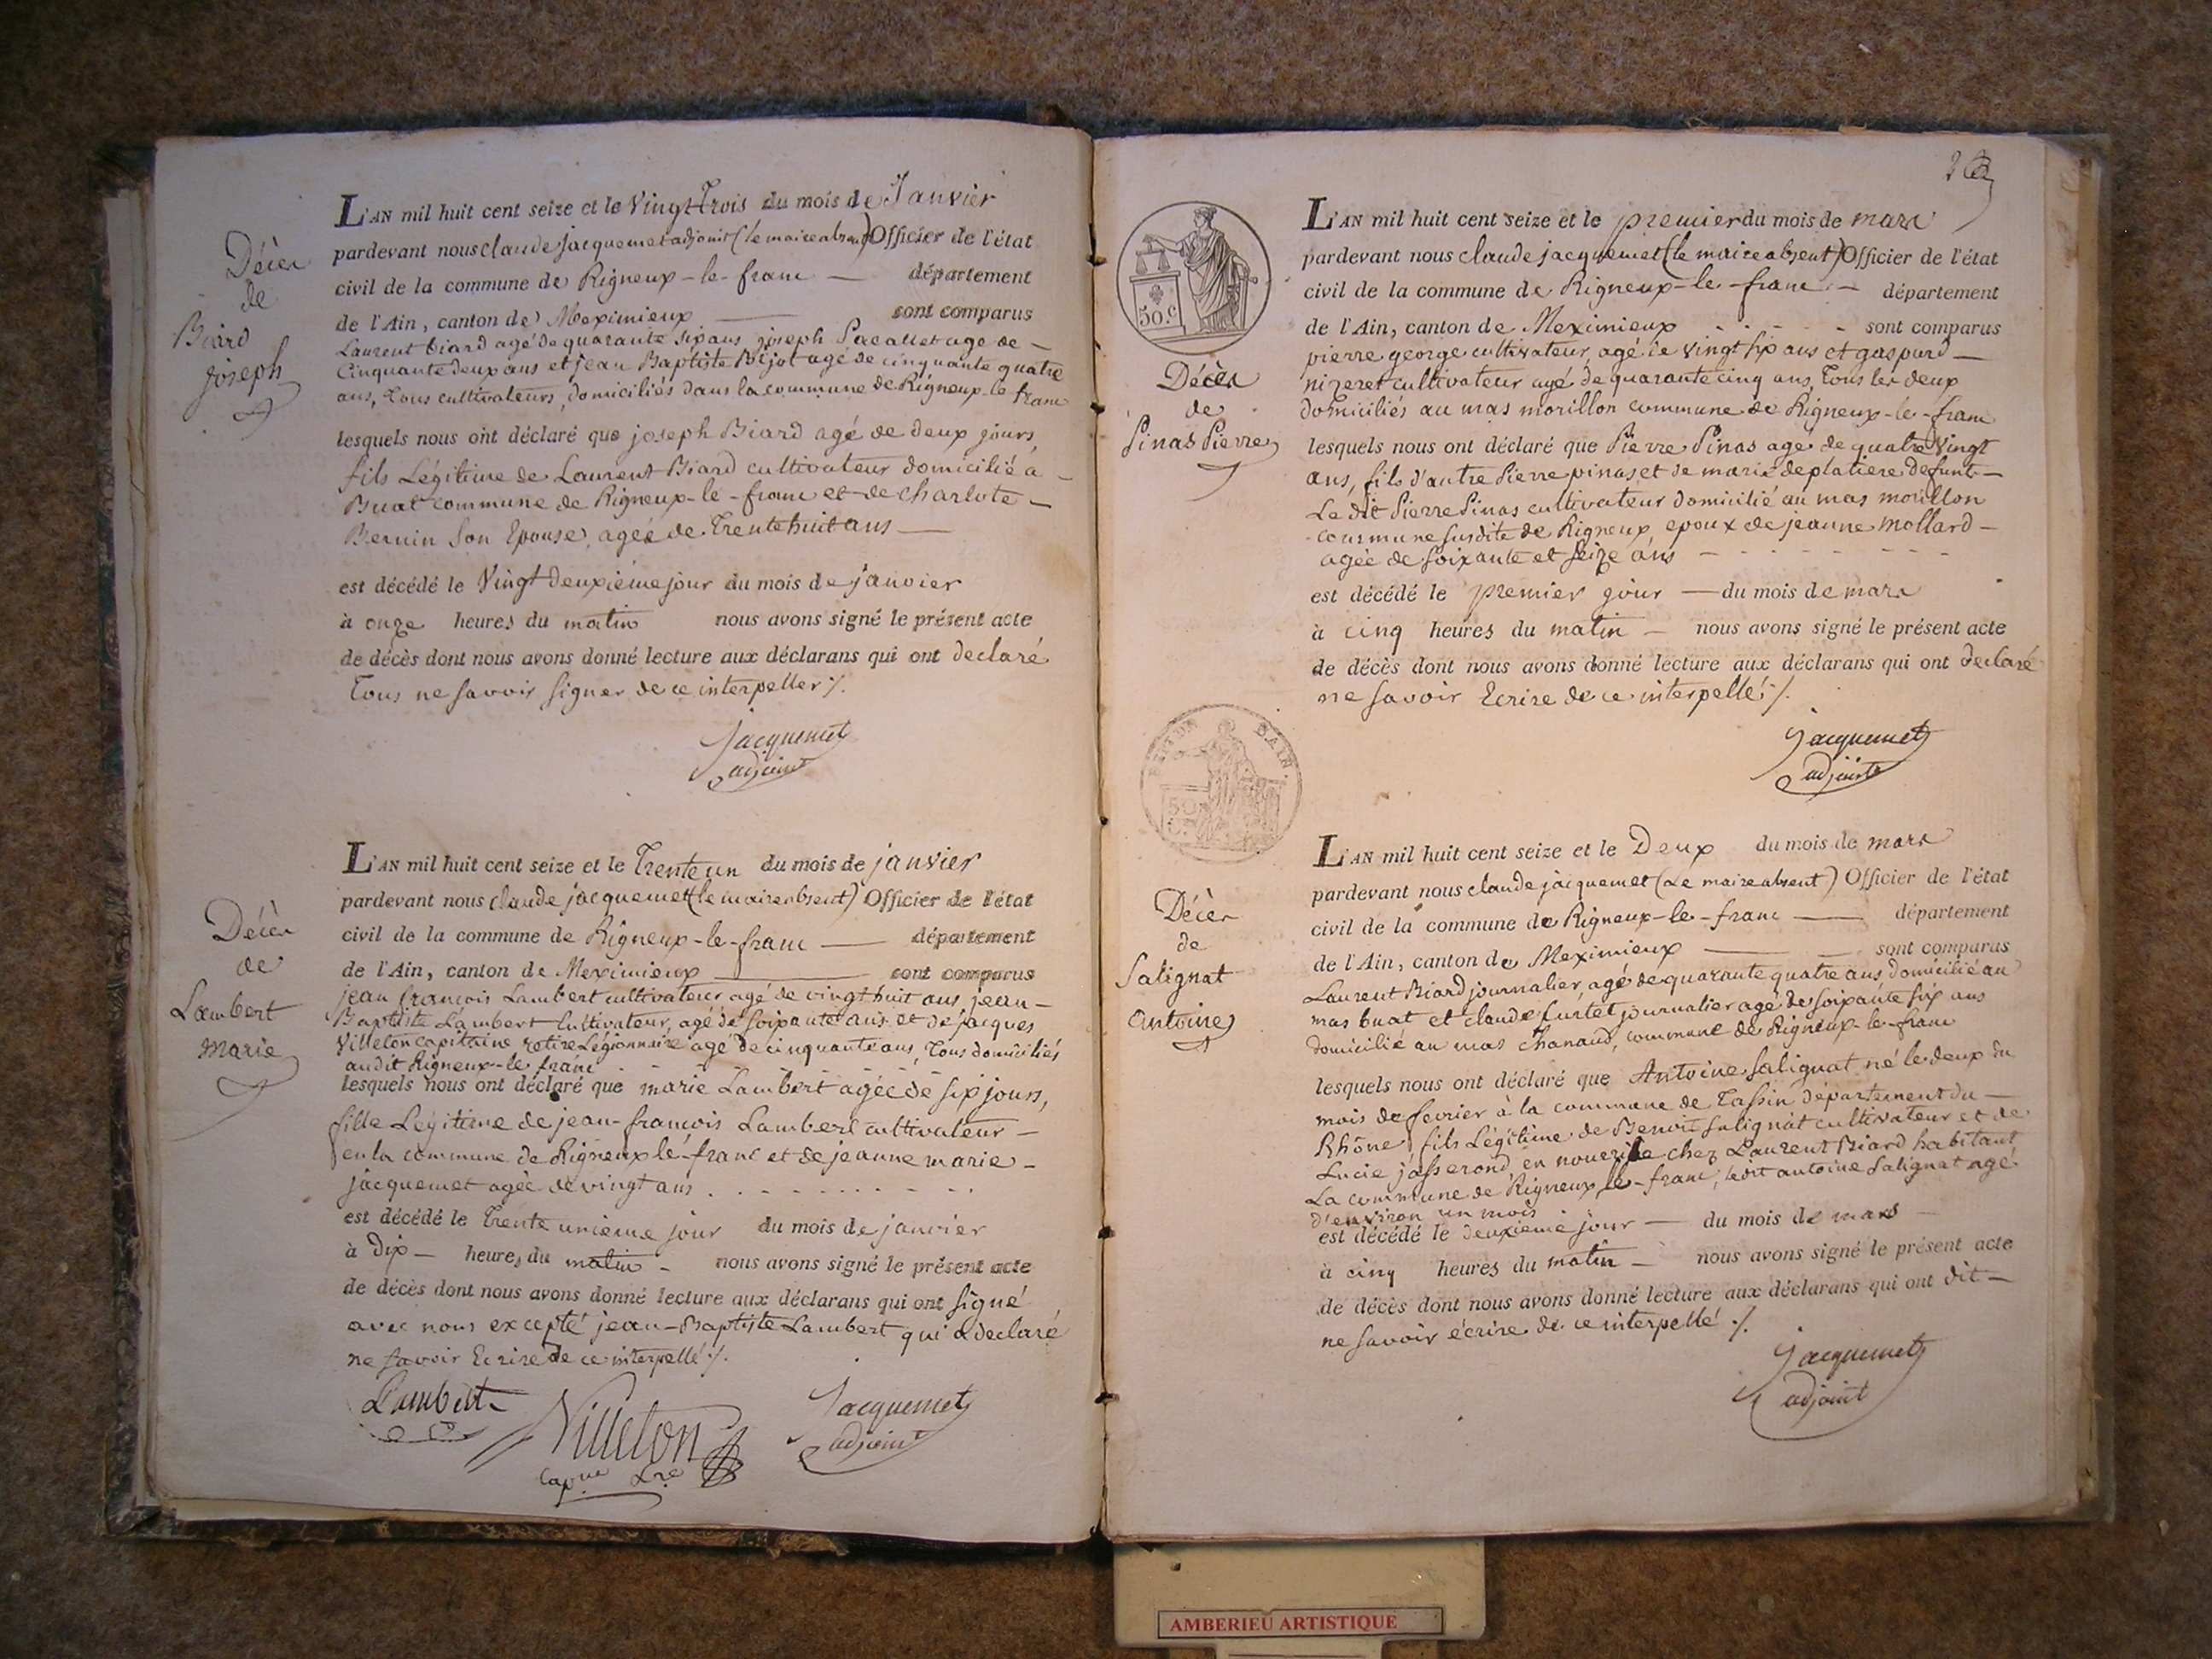 Décès
de
Biard
joseph
L'AN mil huit cent seize et le Vingt Trois du mois de Janvier
pardevant nous claude jacquemet adjoint (le maire absent) Officier de l'état
civil de la commune de Rigneux-le-franc — département
de l'Ain, canton de Meximieux — sont comparus
Laurent biard agé de quarante six ans joseph agé de —
Cinquante deux ans et jean Baptiste Bijot agé de cinquante quatre
ans, Tous cultivateurs, domiciliés dans la commune de Rigneux-le franc
lesquels nous ont déclaré que joseph Biard agé de deux jours,
fils Légitime de Laurent Biard cultivateur domicilié à —
Buat commune de Rigneux-le-franc et de charlote —
Bernin Son Epouse, agée de Trente huit ans —
est décédé le Vingt deuxième jour du mois de janvier
à onze heures du matin nous avons signé le présent acte
de décès dont nous avons donné lecture aux déclarans qui ont declaré
Tous ne savoir signer de ce interpeller ./.
jacquemet
adjoint
Décès
de
Lambert
Marie
L'AN mil huit cent seize et le Trente un du mois de janvier
pardevant nous claude jacquemet (le maire absent) Officier de l'état
civil de la commune de Rigneux-le-franc — département
de l'Ain, canton de Meximieux — sont comparus
jean françois Lambert cultivateur agé de vingt huit ans, jean —
Baptiste Lambert Cultivateur, agé de soixante ans et de jacques
Villeton capitaine retiré Légionnaire agé de cinquante ans, Tous domiciliés
audit Rigneux-le franc
lesquels nous ont déclaré que marie Lambert agée de six jours,
fille Légitime de jean-françois Lambert cultivateur —
en la commune de Rigneux le-franc et de jeanne marie —
jacquemet agée de vingt ans . - - - - -
est décédé le Trente unieme jour du mois de janvier
à Dix — heures du matin - nous avons signé le présent acte
de décès dont nous avons donné lecture aux déclarans qui ont signé
avec nous excepté jean-Baptiste Lambert qui a declaré
ne savoir Ecrire de ce interpellé ./.
Lambert
Villeton
Jacquemet
adjoint
50 c.
Décès
de
Pinas Pierre
L'AN mil huit cent seize et le premier du mois de mars
pardevant nous claude jacquemet (le maire absent) Officier de l'état
civil de la commune de Rigneux-le-franc — département
de l'Ain, canton de Meximieux - - - - - sont comparus
pierre george cultivateur, agé de vingt six ans et gaspard —
nizeret cultivateur agé de quarante cinq ans, Tous les deux
domiciliés au mas morillon commune de Rigneux-le-franc
lesquels nous ont déclaré que Pierre Pinas age de quatre Vingt
ans, fils d'autre Pierre pinas et de marie deplatiere defunt —
Le dit Pierre Pinas cultivateur domicilié au mas morillon
commune susdite de Rigneux, epoux de jeanne mollard —
agée de soixante et seize ans - - - - - - -
est décédé le premier jour — du mois de mars
à cinq heures du matin — nous avons signé le présent acte
de décès dont nous avons donné lecture aux déclarans qui ont declaré
ne savoir Ecrire de ce interpellé ./.
jacquemet
adjoint
AIN.
50
Décès
de
Salignat
antoine
L'AN mil huit cent seize et le Deux du mois de mars
pardevant nous claude jacquemet (Le maire absent) Officier de l'état
civil de la commune de Rigneux-le-franc — département
de l'Ain, canton de Meximieux — sont comparus
Laurent Biard journalier, agé de quarante quatre ans domicilié au
mas buat et claude Curtet journalier agé de soixante six ans
domicilié au mas Chanaud, commune de Rigneux-le-franc
lesquels nous ont déclaré que Antoine Salignat né le deux du
mois de fevrier à la commune de Tassin département du —
Rhône, fils Légitime de Benoit Salignat cultivateur et de
Lucie jasserond, en nourrice chez Laurent Biard habitant
La commune de Rigneux le-franc, ledit antoine Salignat agé
d'environ un mois
est décédé le deuxieme jour — du mois de mars
à cinq heures du matin — nous avons signé le présent acte
de décès dont nous avons donné lecture aux déclarans qui ont dit —
ne savoir écrire de ce interpellé ./.
jacquemet
adjoint
AMBERIEU ARTISTIQUE